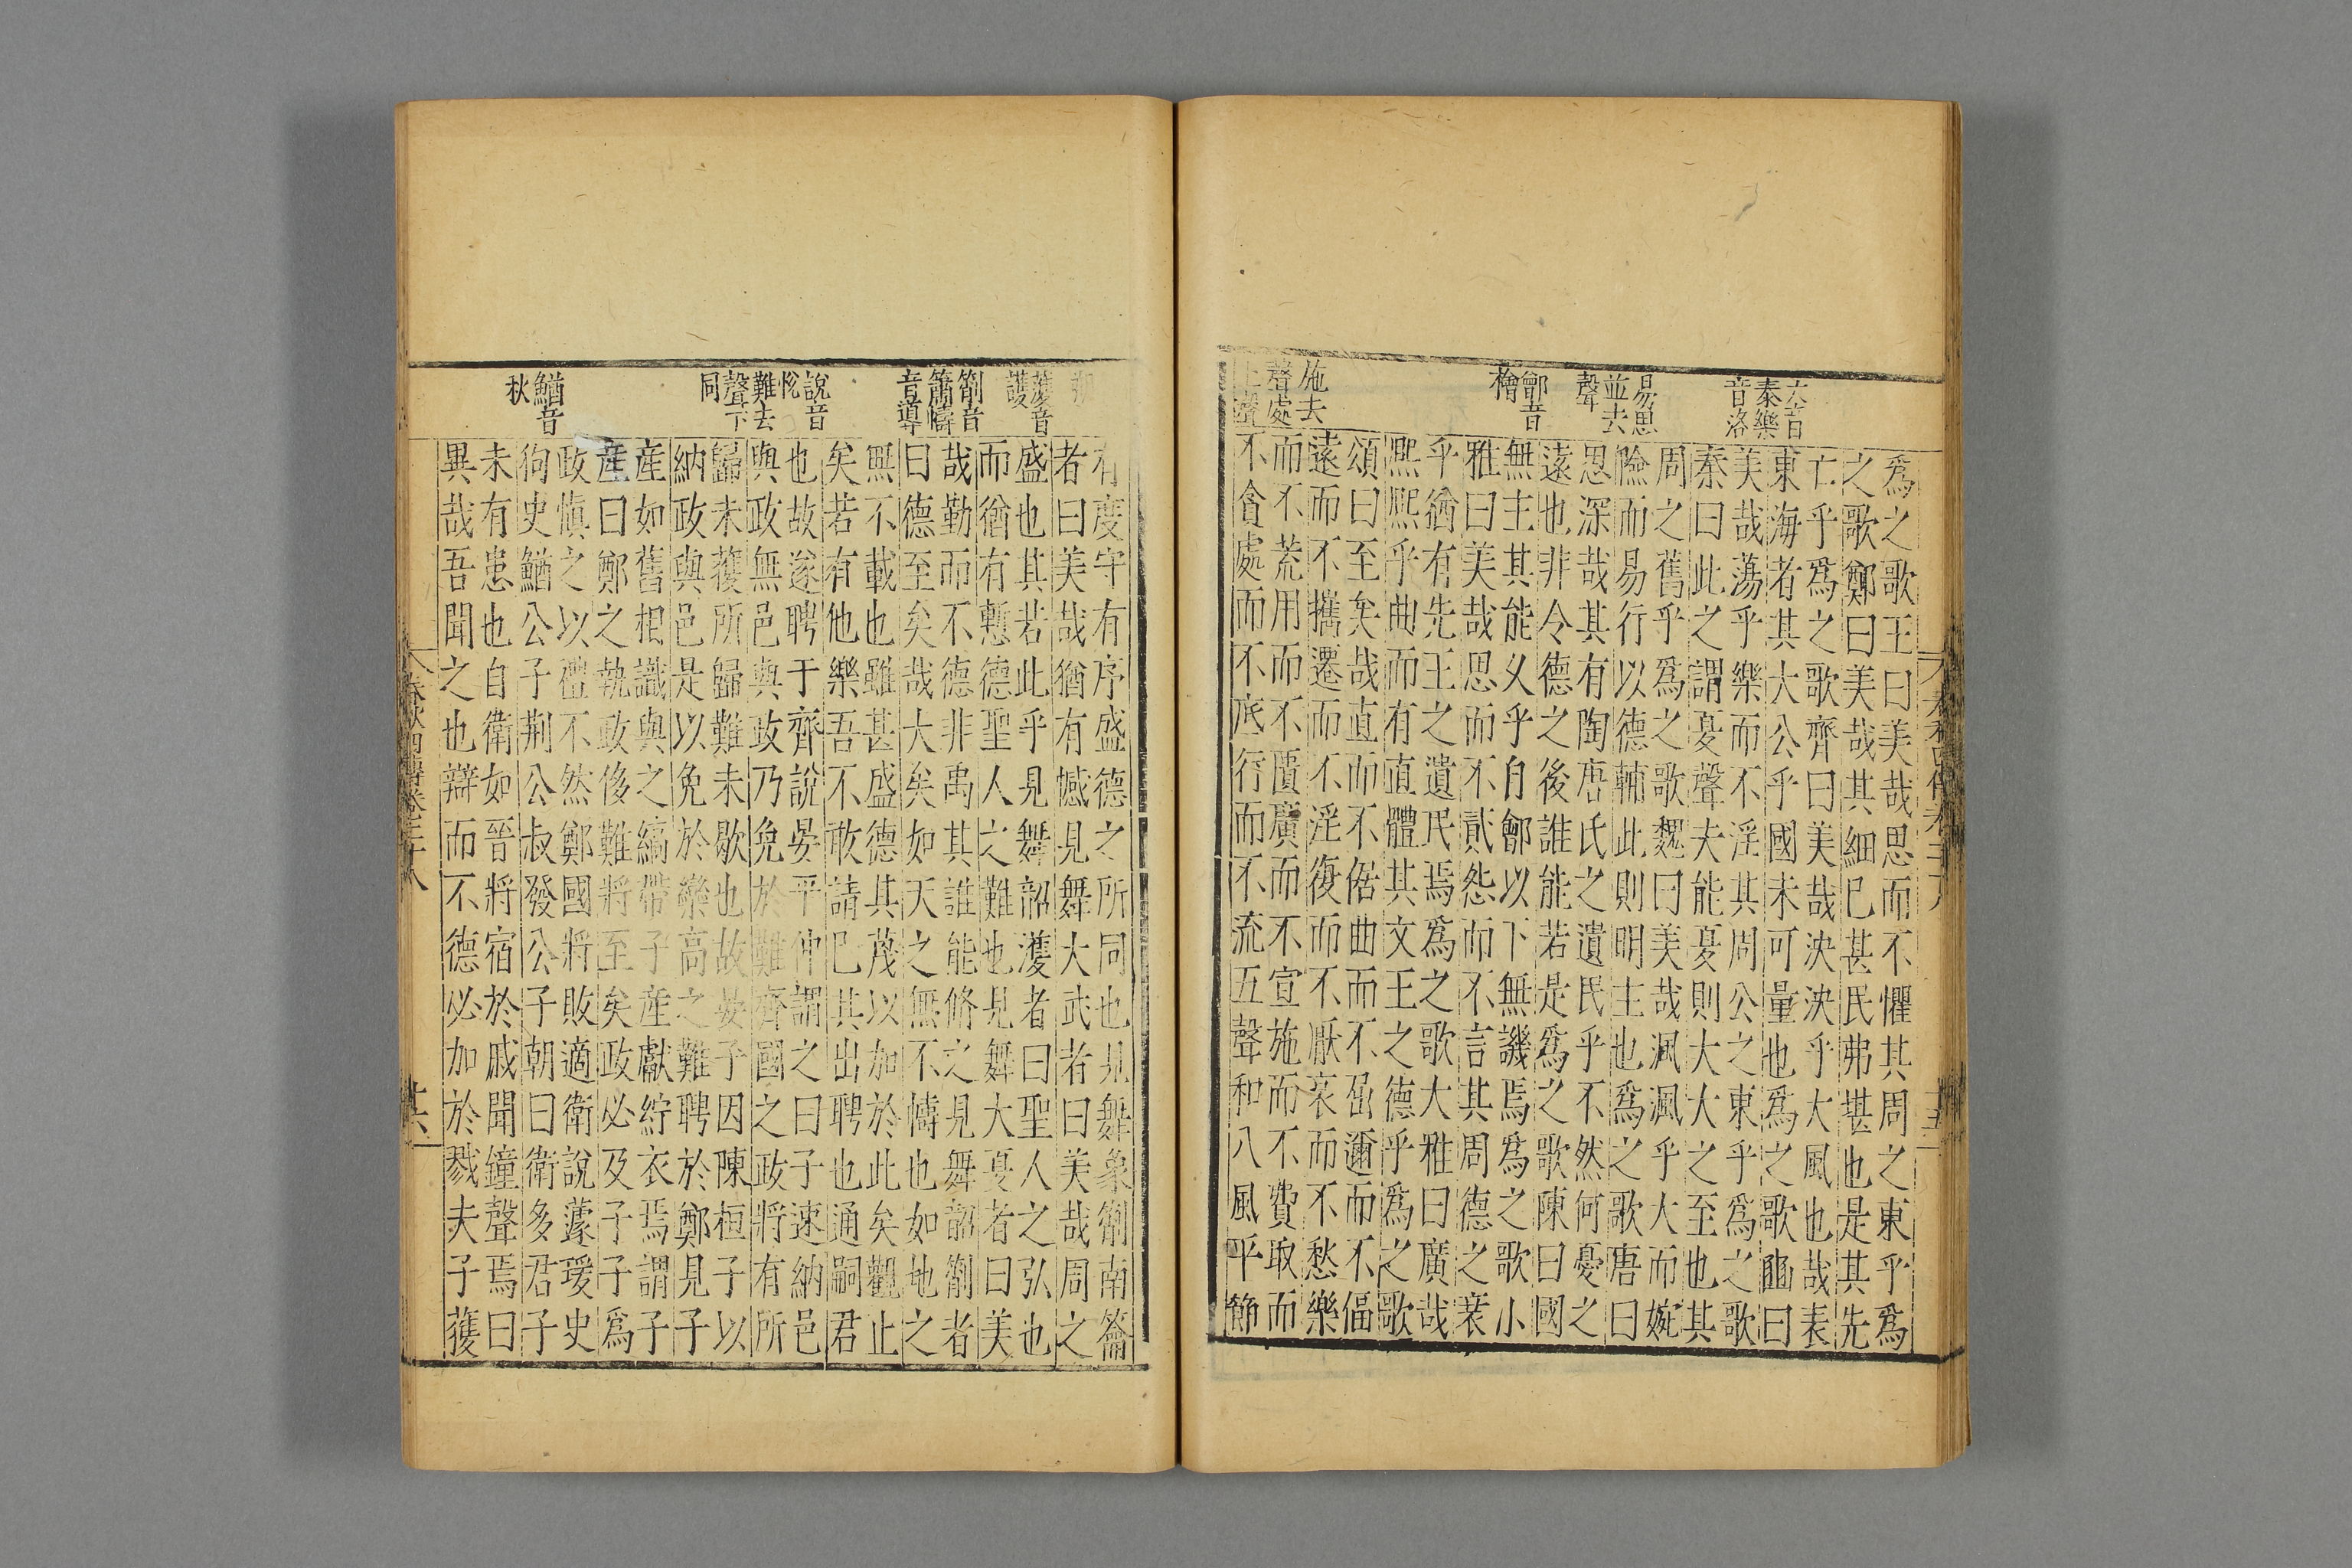 大音
泰樂
音洛
易思
並去
聲
鄶音
檜
施去
聲處
上聲
爲之歌王曰美哉思而不懼其周之東乎爲
之歌鄭曰美哉其細已甚民弗堪也是其先
亡乎爲之歌齊曰美哉泱泱乎大風也哉表
東海者其大公乎國未可量也爲之歌豳曰
美哉蕩乎樂而不淫其周公之東乎爲之歌
秦曰此之謂夏聲夫能夏則大大之至也其
周之舊乎爲之歌魏曰美哉渢渢乎大而婉
險而易行以德輔此則明主也爲之歌唐曰
思深哉其有陶唐氏之遺民乎不然何憂之
遠也非令德之後誰能若是爲之歌陳曰國
無主其能乂乎自鄶以下無譏焉爲之歌小
雅曰美哉思而不貳怨而不言其周德之衰
乎猶有先王之遺民焉爲之歌大雅曰廣哉
熙熙乎曲而有直體其文王之德乎爲之歌
頌曰至矣哉直而不倨曲而不屈邇而不偪
遠而不攜遷而不淫復而不厭哀而不愁樂
而不荒用而不匱廣而不宣施而不費取而
不貪處而不底行而不流五聲和八風平節
春秋四傳卷二十八
十五
朔
濩音
護
箾音
簫幬
音導
說音
悅
難去
聲下
同
鰌音
秋
有度守有序盛德之所同也見舞象箾南籥
者曰美哉猶有憾見舞大武者曰美哉周之
盛也其若此乎見舞韶濩者曰聖人之弘也
而猶有慙德聖人之難也見舞大夏者曰美
哉勤而不德非禹其誰能脩之見舞韶箾者
曰德至矣哉大矣如天之無不幬也如地之
無不載也雖甚盛德其蔑以加於此矣觀止
矣若有他樂吾不敢請已其出聘也通嗣君
也故遂聘于齊說晏平仲謂之曰子速納邑
與政無邑與政乃免於難齊國之政將有所
歸未獲所歸難未歇也故晏子因陳桓子以
納政與邑是以免於欒高之難聘於鄭見子
產如舊相識與之縞帶子產獻紵衣焉謂子
產曰鄭之執政侈難將至矣政必及子子爲
政愼之以禮不然鄭國將敗適衛說蘧瑗史
狗史鰌公子荆公叔發公子朝曰衛多君子
未有患也自衛如晉將宿於戚聞鐘聲焉曰
異哉吾聞之也辯而不德必加於戮夫子獲
春秋四傳卷二十八
十六